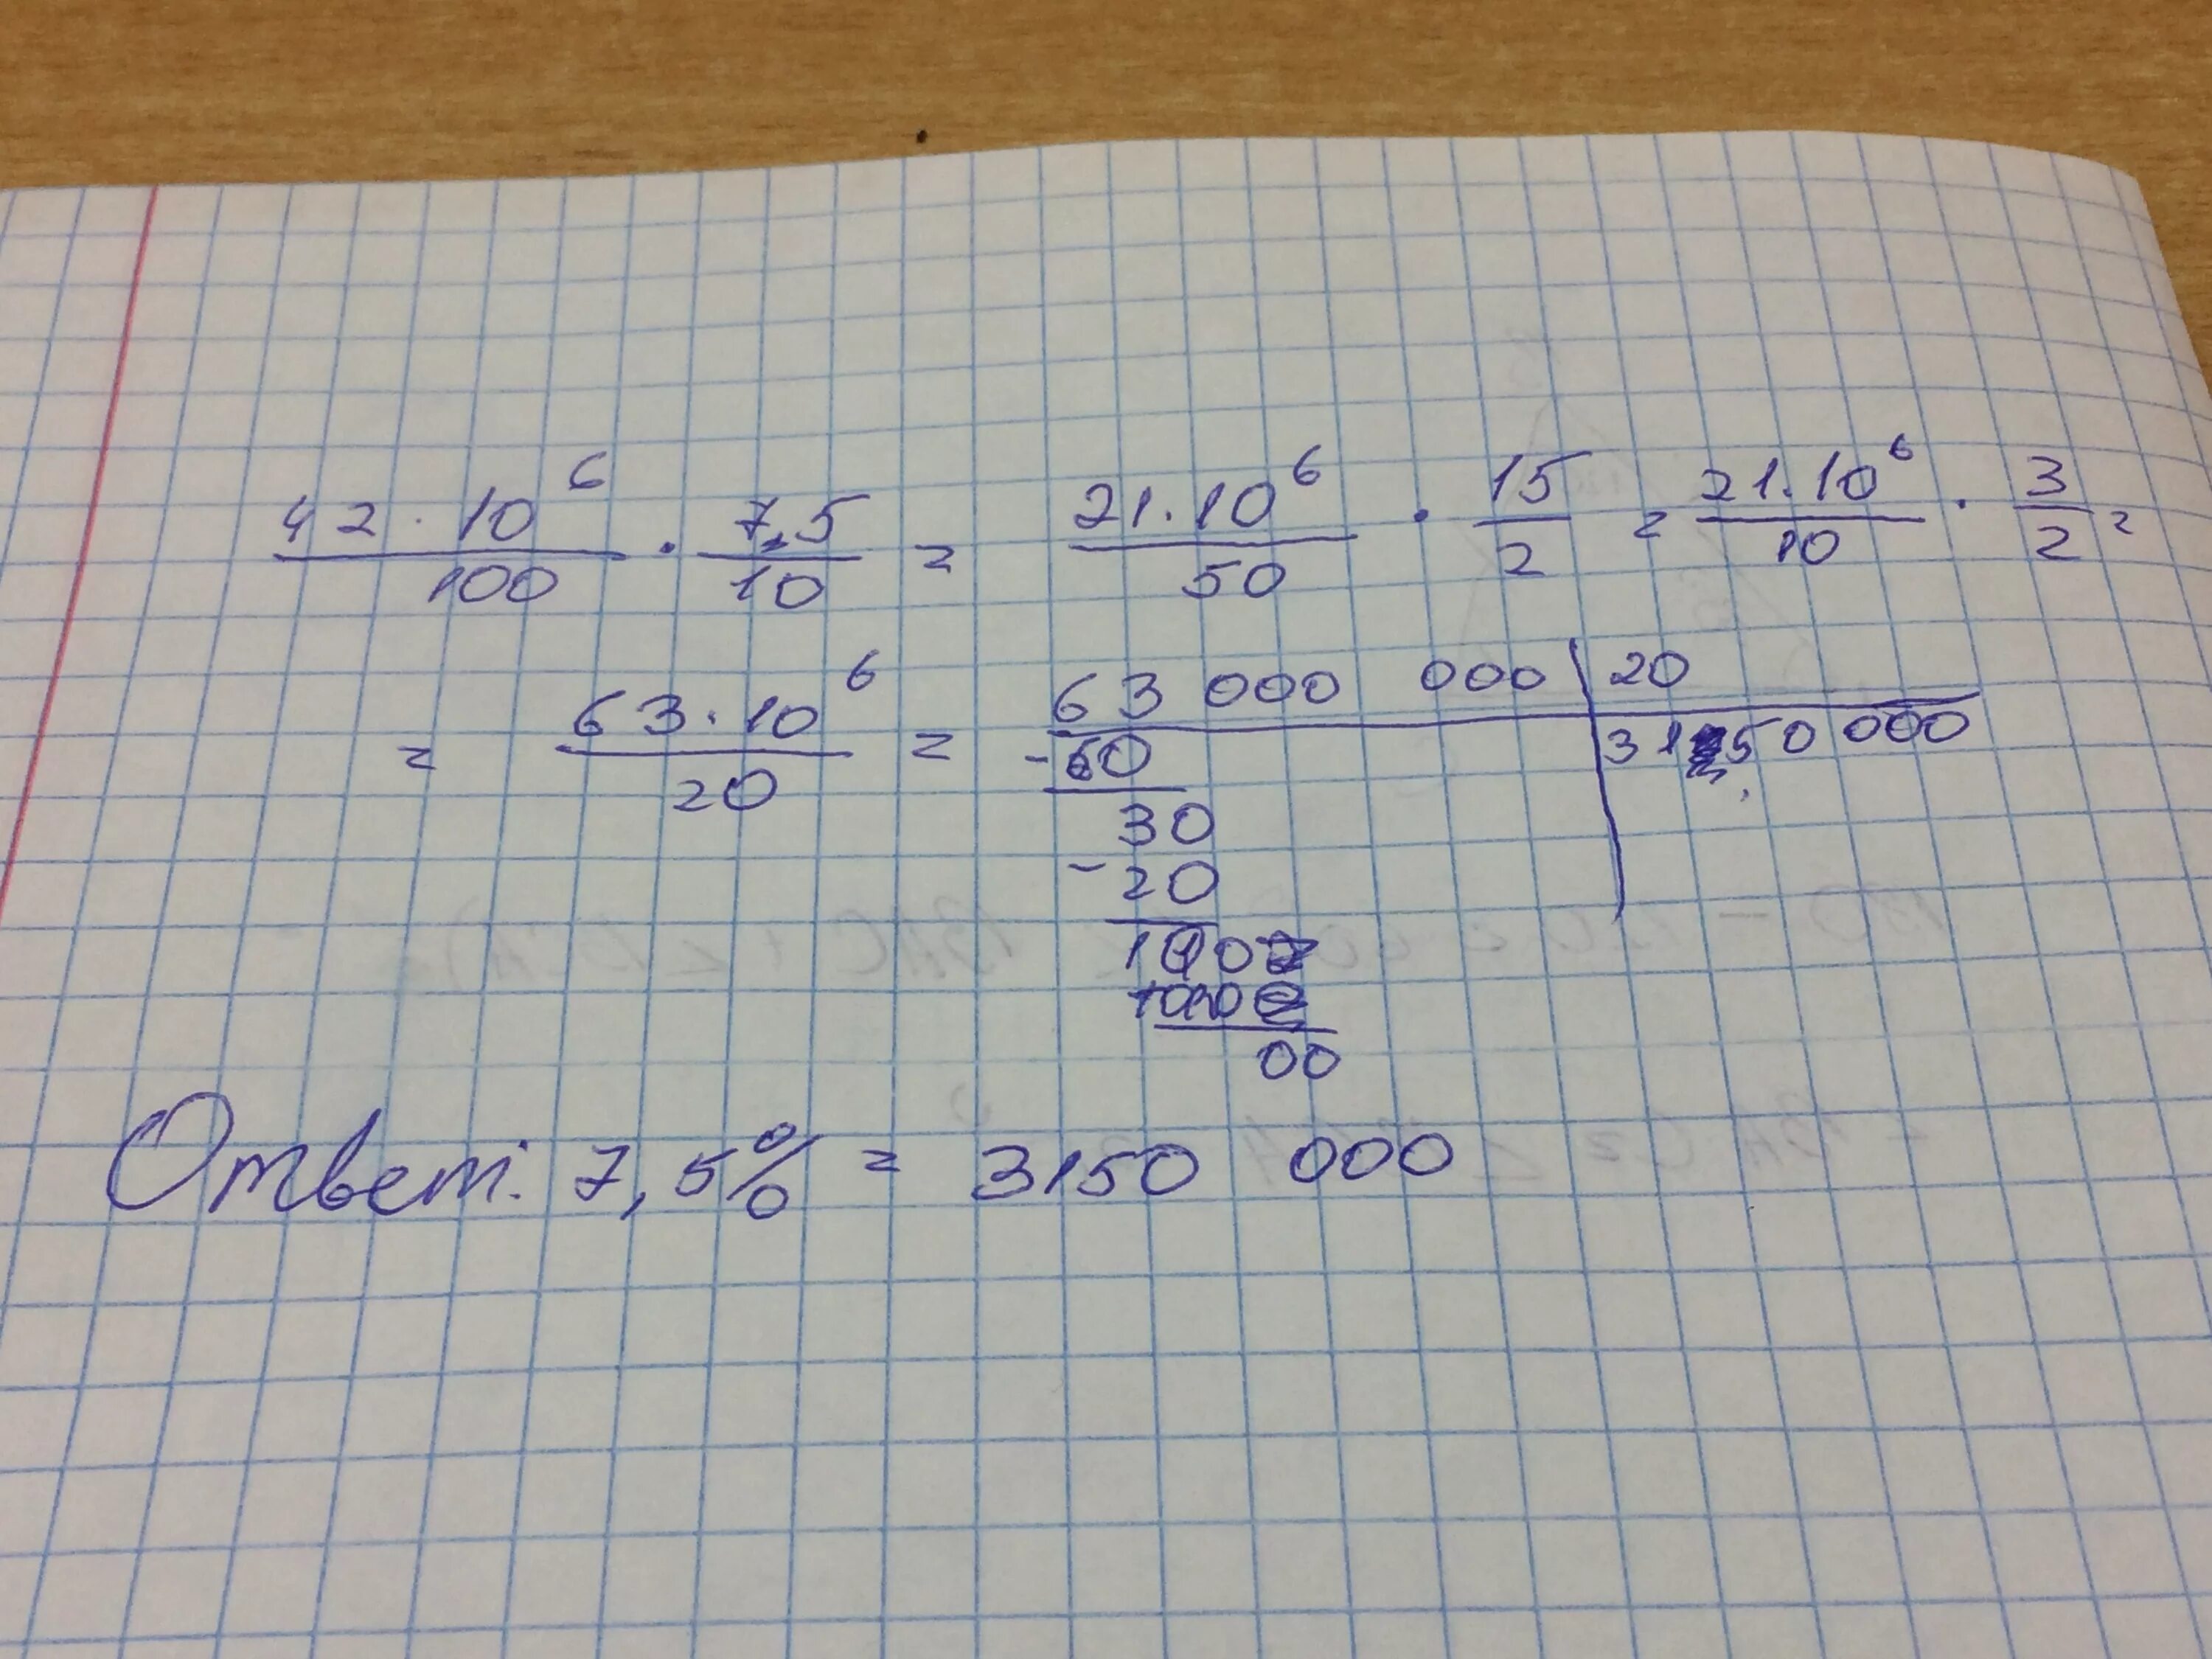 42 · 10⁶/100 · 7,5/10 = 21 · 10⁶/50 · 15/2 = 21 · 10⁶/10 · 3/2 =
= 63 · 10⁶/20 = 63 000 000 | 20
-60 3150 000
30
-20
100
00
Ответ: 7,5% = 3150 000